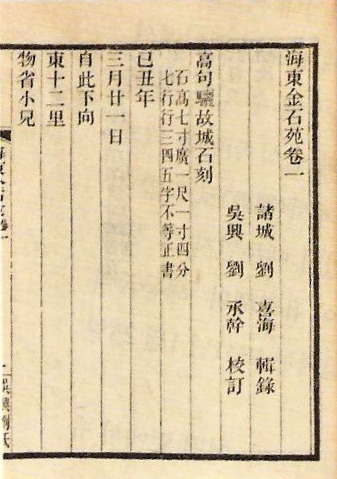 海東金石苑卷一
諸城 劉 喜海 輯錄
吳興 劉 承幹 校訂
高句驪故城石刻
石高七寸廣一尺一寸四分
七行行三四五字不等正書
己丑年
三月廿一日
自此下向
東十二里
物省小兄